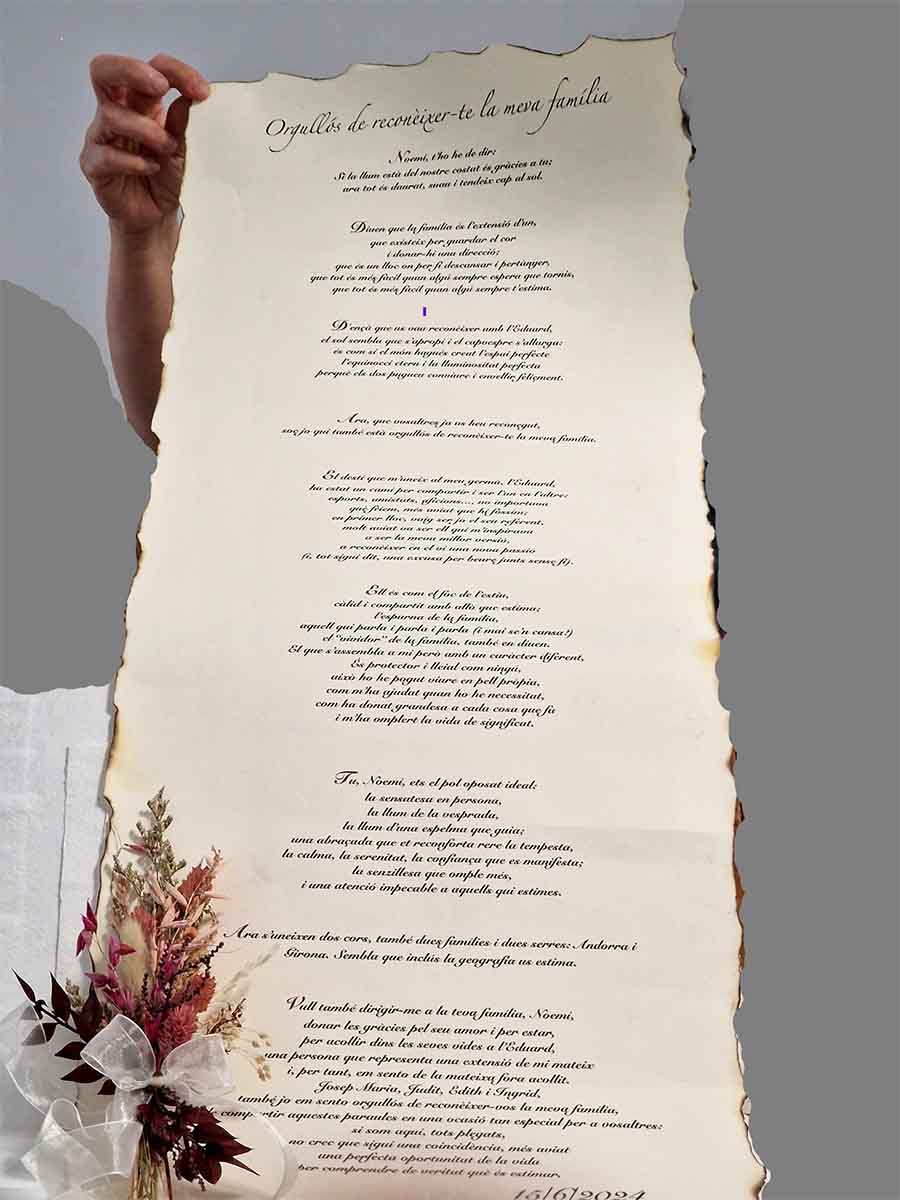 Orgullós de reconèixer-te la meva família
Noemi, t'ho he de dir:
Si la llum està del nostre costat és gràcies a tu;
ara tot és daurat, suau i tendeix cap al sol.
Diuen que la família és l'extensió d'un,
que existeix per guardar el cor
i donar-hi una direcció;
que és un lloc on per fi descansar i pertànyer,
que tot és més fàcil quan algú sempre espera que tornis,
que tot és més fàcil quan algú sempre t'estima.
D'ençà que us vau reconèixer amb l'Eduard,
el sol sembla que s'apropi i el capvespre s'allarga:
és com si el món hagués creat l'espai perfecte
l'equinocci etern i la lluminositat perfecta
perquè els dos pugueu conviure i envellir feliçment.
Ara, que vosaltres ja us heu reconegut,
soc jo qui també està orgullós de reconèixer-te la meva família.
El destí que m'uneix al meu germà, l'Eduard,
ha estat un camí per compartir i ser l'un en l'altre:
esports, amistats, aficions..., no importava
què fèiem, més aviat que hi fóssim;
en primer lloc, vaig ser jo el seu referent,
molt aviat va ser ell qui m'inspirava
a ser la meva millor versió,
a reconèixer en el vi una nova passió
(i, tot sigui dit, una excusa per beure junts sense fi).
Ell és com el foc de l'estiu,
càlid i compartit amb allò que estima;
l'espurna de la família,
aquell qui parla i parla i parla (i mai se'n cansa!)
el "vividor" de la família, també en diuen.
El que s'assembla a mi però amb un caràcter diferent,
És protector i lleial com ningú,
això ho he pogut viure en pell pròpia,
com m'ha ajudat quan ho he necessitat,
com ha donat grandesa a cada cosa que fa
i m'ha omplert la vida de significat.
Tu, Noemi, ets el pol oposat ideal:
la sensatesa en persona,
la llum de la vesprada,
la llum d'una espelma que guia;
una abraçada que et reconforta rere la tempesta,
la calma, la serenitat, la confiança que es manifesta;
la senzillesa que omple més,
i una atenció impecable a aquells qui estimes.
Ara s'uneixen dos cors, també dues famílies i dues serres: Andorra i
Girona. Sembla que inclús la geografia us estima.
Vull també dirigir-me a la teva família, Noemi,
donar les gràcies pel seu amor i per estar,
per acollir dins les seves vides a l'Eduard,
una persona que representa una extensió de mi mateix
i, per tant, em sento de la mateixa fora acollit.
Josep Maria, Judit, Edith i Ingrid,
també jo em sento orgullós de reconèixer-vos la meva família,
de compartir aquestes paraules en una ocasió tan especial per a vosaltres:
si som aquí, tots plegats,
no crec que sigui una coincidència, més aviat
una perfecta oportunitat de la vida
per comprendre de veritat què és estimar.
15/6/2024